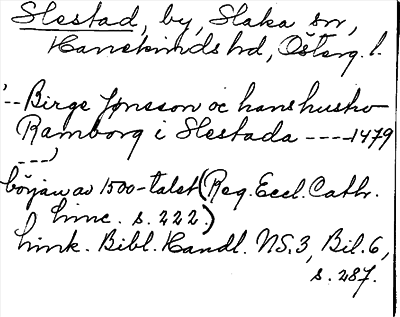 Slestad, by, Slaka sn,
Hanekinds hd, Österg. l.
'-- Birge Jonsson oc hans husho
Ramborg i Slestada ---- 1479
---'
början av 1500-talet (Reg. Eccl. Cath.
Linc. s. 222.)
Link. Bibl. Handl. NS. 3, Bil. 6,
s. 287.